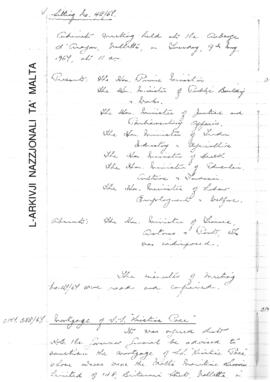 Sitting No. 40/69.
Cabinet meeting held at the Auberge
d'Aragon, Valletta, on Tuesday, 9th
1969, at 11 a.m.
L-ARKIVJI NAZZJONALI TA' MALTA
Present: The Hon. Prime Minister
The Hon. Minister of Public Building
& Works.
The Hon. Minister of Justice and
Parliamentary Affairs.
The Hon. Minister of
Industry & Agriculture
The Hon. Minister of Health
The Hon. Minister of Education,
Culture & Tourism.
The Hon. Minister of Labour
Employment & Welfare.
Absent: The Hon. Minister of Finance,
Customs & Port, who
was indisposed.
The minutes of Meeting
were read and confirmed.
Mortgage of S.S.
It was agreed that
H.E. the Governor General be advised to
sanction the mortgage of S.S.
whose owners were the Malta Maritime
Limited of Street, Valletta